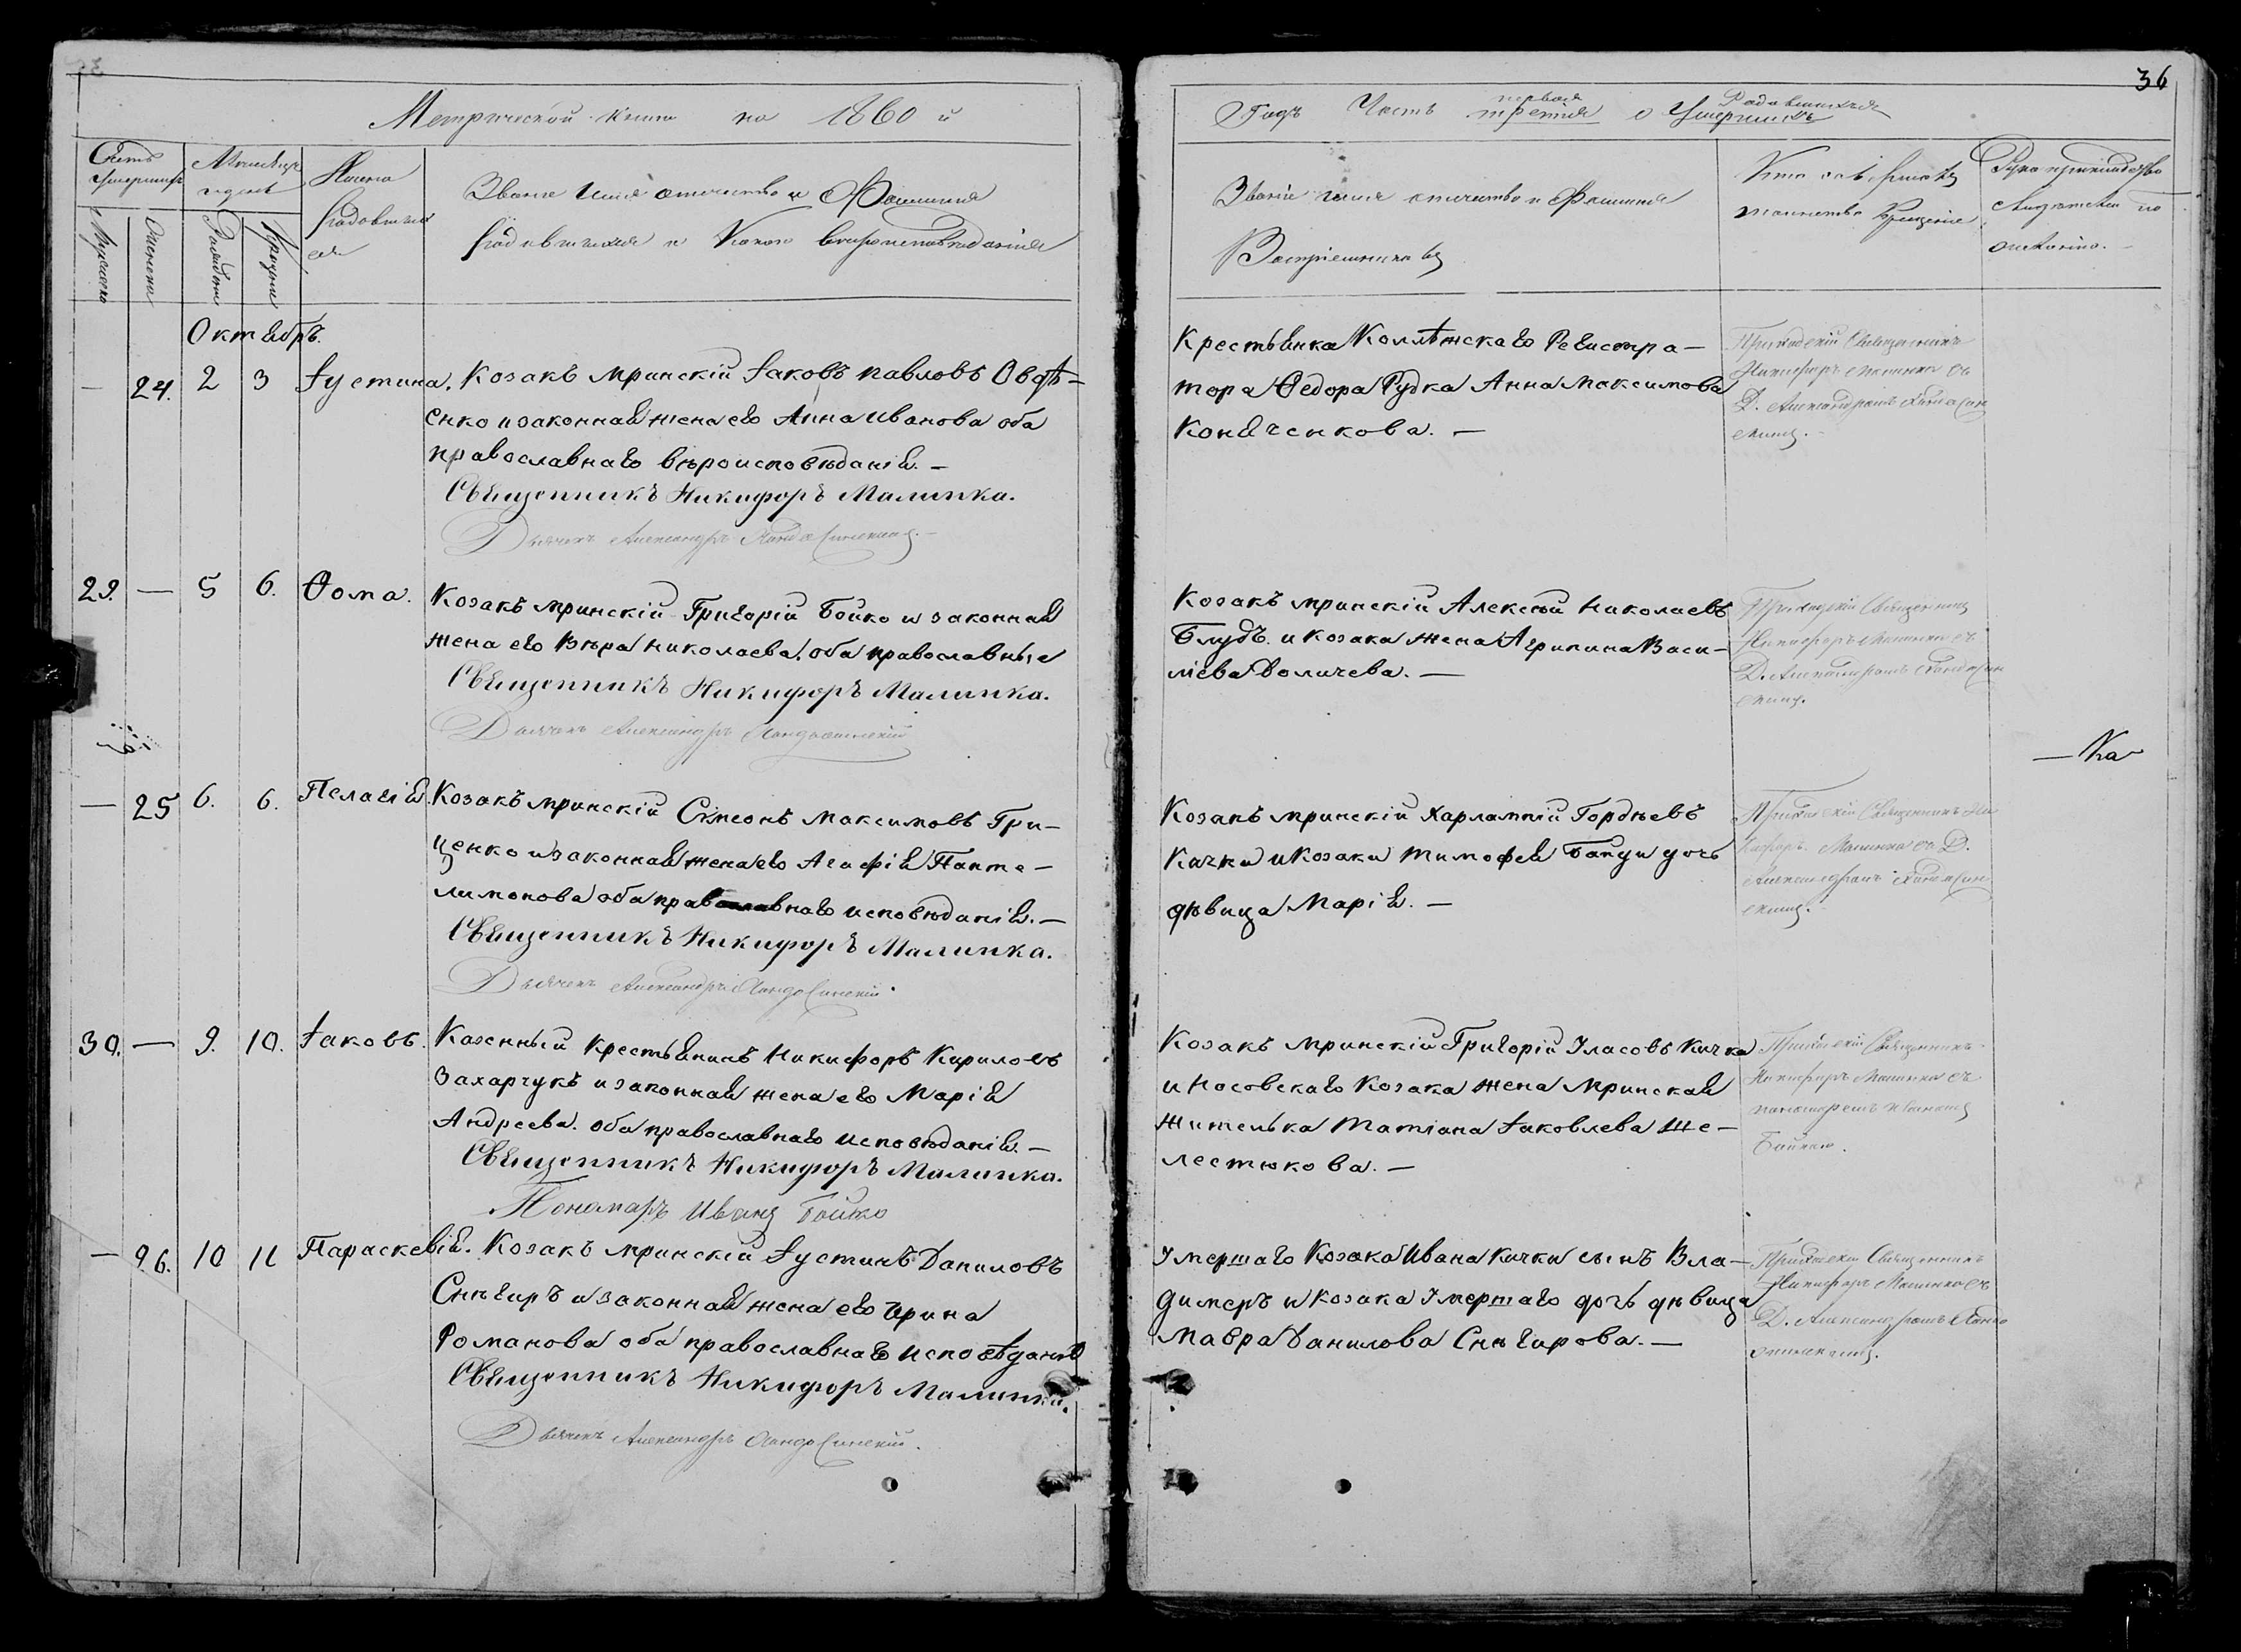 36
Метрической книги на 1860 й
Годъ Часть первая третия о Родившихся Умершихъ
Счетъ умершихъ
Мужеска
Женска
Месяцъ и день
Рождения
Крещения
Имена родившихся
Званіе Имя отчество и Фамилія
родившихся и Какого вероисповеданія
Званіе имя отчество и Фамилія
Воспріемниковъ
Кто совершалъ
таинство Крещенія
Рукоприкладство
свидетелей по
желанію.
Октябрь.
— 24. 2 3 Іустина. Козакъ мринскій Іаковъ павловъ Овдѣ-
енко и законная жена его Анна иванова оба
православнаго вѣроисповѣданія. —
Священникъ Никифоръ Малинка.
Дьячекъ Александръ
Крестьянка Коллѣжскаго Регистра-
тора Ѳедора Рудка Анна Максимова
Коначенкова. —
Приходскій Священникъ
Никифоръ Малинка съ
Д. Александромъ
29. — 5 6. Ѳома. Козакъ мринскій Григорій Бойко и законная
жена его Вѣра николаева. оба православные
Священникъ Никифоръ Малинка.
Дьячекъ Александръ
Козакъ мринскій Алексѣй Николаевъ
Блудъ. и козака жена Агрипина Васи-
ліева Доличева. —
Приходскій Священникъ
Никифоръ Малинка съ
Д. Александромъ
— Ка
— 25 6. 6. Пелагія. Козакъ мринскій Симеонъ Максимовъ Гри-
ценко и законная жена его Агафія Панте-
лимонова оба православнаго исповѣданія. —
Священникъ Никифоръ Малинка.
Дьячекъ Александръ
Козакъ мринскій Харлампій Гордѣевъ
Качка и Козака Тимофея Банди дочь
дѣвица Марія. —
Приходскій Священникъ Ни-
кифоръ Малинка съ Д.
Александромъ
30. — 9. 10. Іаковъ. Казенный Крестьянинъ Никифоръ Кириловъ
Захарчукъ и законная жена его Марія
Андреева. оба православнаго исповѣданія. —
Священникъ Никифоръ Малинка.
Пономарь Иванъ Бойко
Козакъ мринскій Григорій Уласовъ Качка
и Носовскаго Козака жена мринская
жителька Татіана Іаковлева Ше-
лестюкова. —
Приходскій Священникъ
Никифоръ Малинка съ
пономаремъ Иваномъ
Бойкою.
— 26. 10 11 Параскевія. Козакъ мринскій Іустинъ Даниловъ
Снѣгиръ и законная жена его Ирина
Романова оба православнаго исповѣданія
Священникъ Никифоръ Малинка.
Дьячекъ Александръ
Умершаго Козака Ивана Качки сынъ Вла-
димеръ и козака Умершаго дочь дѣвица
Мавра Данилова Снѣгирова. —
Приходскій Священникъ
Никифоръ Малинка съ
Д. Александромъ